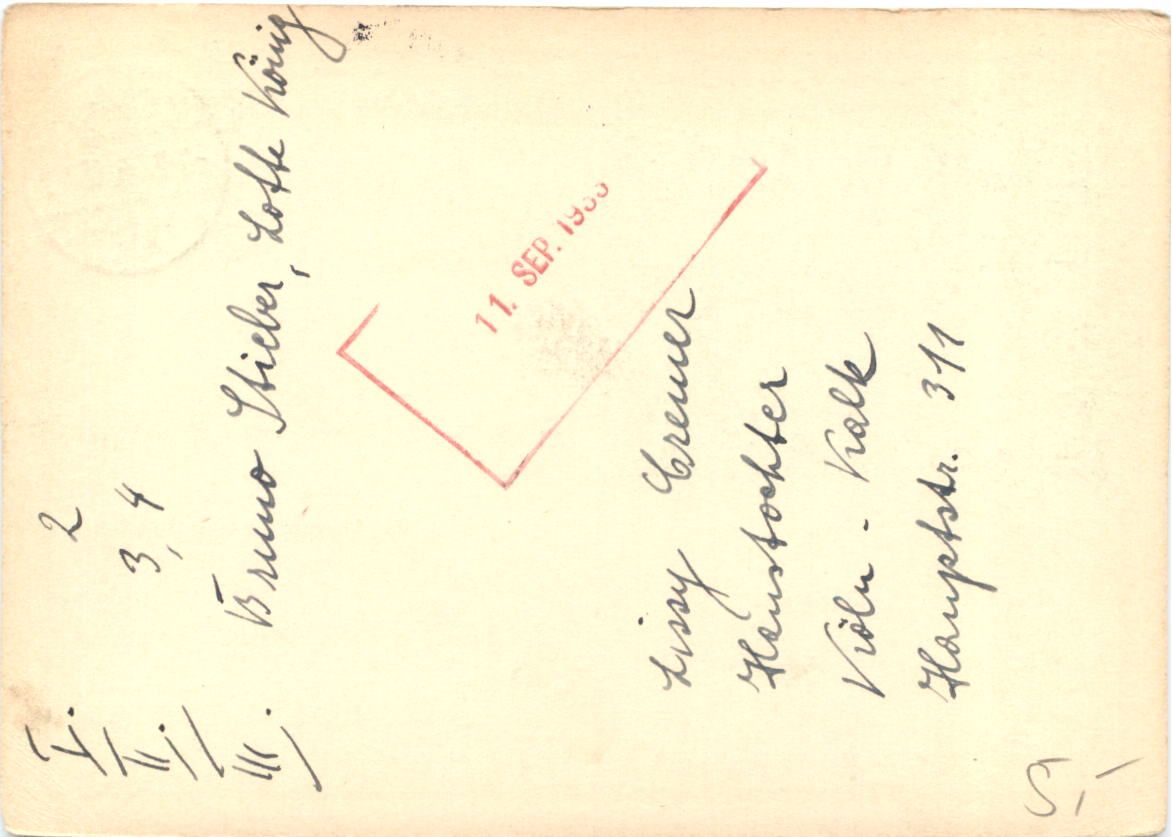 I. 2
II. 3, 4
III. Bruno Stieber, Lotte König
11. SEP. 1933
Lissy Cremer
Haustochter
Köln - Kalk
Hauptstr. 311